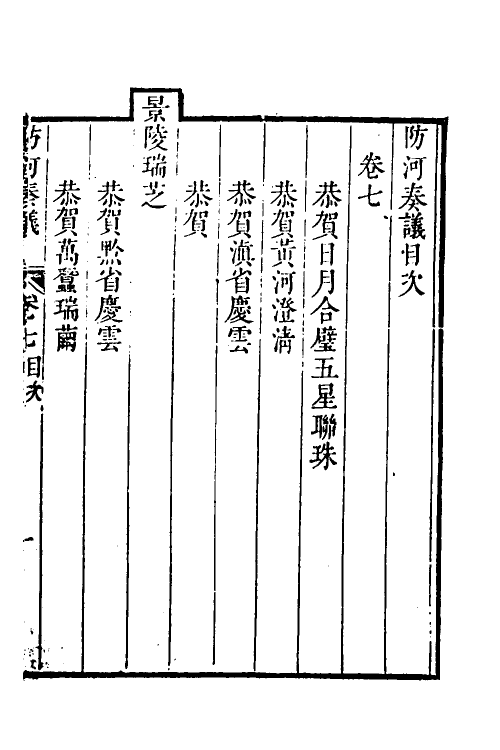 防河奏議目次
卷七
恭賀日月合璧五星聯珠
恭賀黃河澄清
恭賀滇省慶雲
恭賀
景陵瑞芝
恭賀黔省慶雲
恭賀萬蠶瑞繭
防河奏議 卷七目次 一